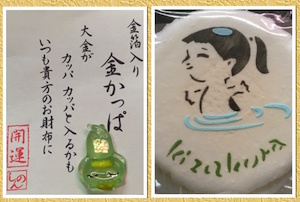 金箔入り
金かっぱ
大金が
カッパ カッパと入るかも
いつも貴方のお財布に
開運
kizakura